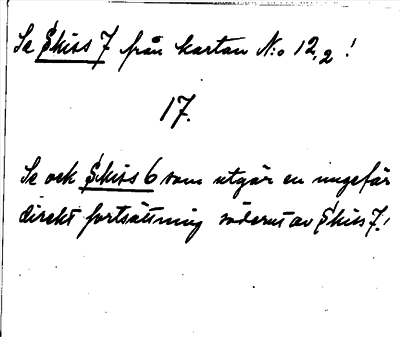 Se Skiss 7 från kartan N:o 12,2!
17.
Se ock Skiss 6 som utgör en ungefär
direkt fortsättning söderut av Skiss 7!